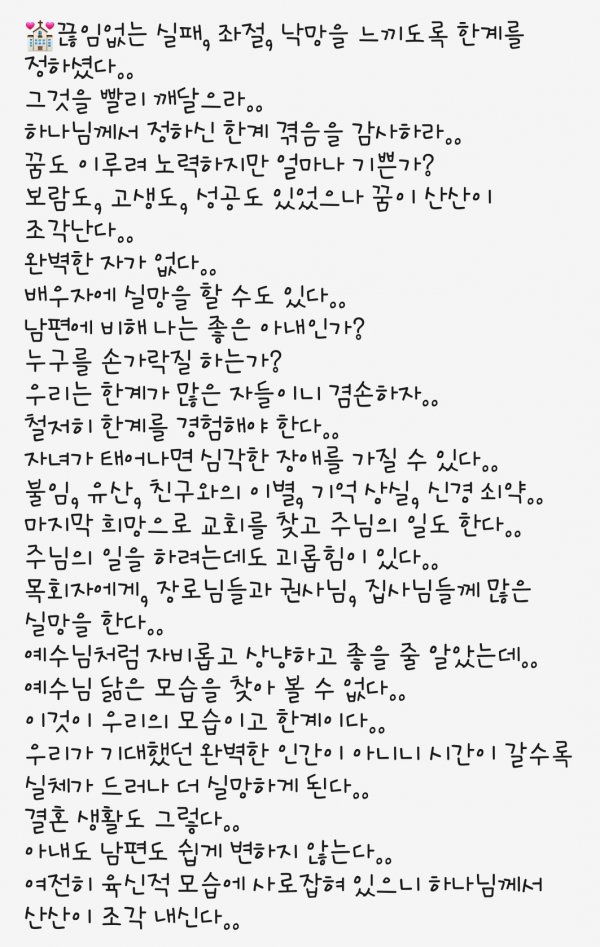 💒끊임없는 실패, 좌절, 낙망을 느끼도록 한계를
정하셨다..
그것을 빨리 깨달으라..
하나님께서 정하신 한계 겪음을 감사하라..
꿈도 이루려 노력하지만 얼마나 기쁜가?
보람도, 고생도, 성공도 있었으나 꿈이 산산이
조각난다..
완벽한 자가 없다..
배우자에 실망을 할 수도 있다..
남편에 비해 나는 좋은 아내인가?
누구를 손가락질 하는가?
우리는 한계가 많은 자들이니 겸손하자..
철저히 한계를 경험해야 한다..
자녀가 태어나면 심각한 장애를 가질 수 있다..
불임, 유산, 친구와의 이별, 기억 상실, 신경 쇠약..
마지막 희망으로 교회를 찾고 주님의 일도 한다..
주님의 일을 하려는데도 괴롭힘이 있다..
목회자에게, 장로님들과 권사님, 집사님들께 많은
실망을 한다..
예수님처럼 자비롭고 상냥하고 좋을 줄 알았는데..
예수님 닮은 모습을 찾아 볼 수 없다..
이것이 우리의 모습이고 한계이다..
우리가 기대했던 완벽한 인간이 아니니 시간이 갈수록
실체가 드러나 더 실망하게 된다..
결혼 생활도 그렇다..
아내도 남편도 쉽게 변하지 않는다..
여전히 육신적 모습에 사로잡혀 있으니 하나님께서
산산이 조각 내신다..